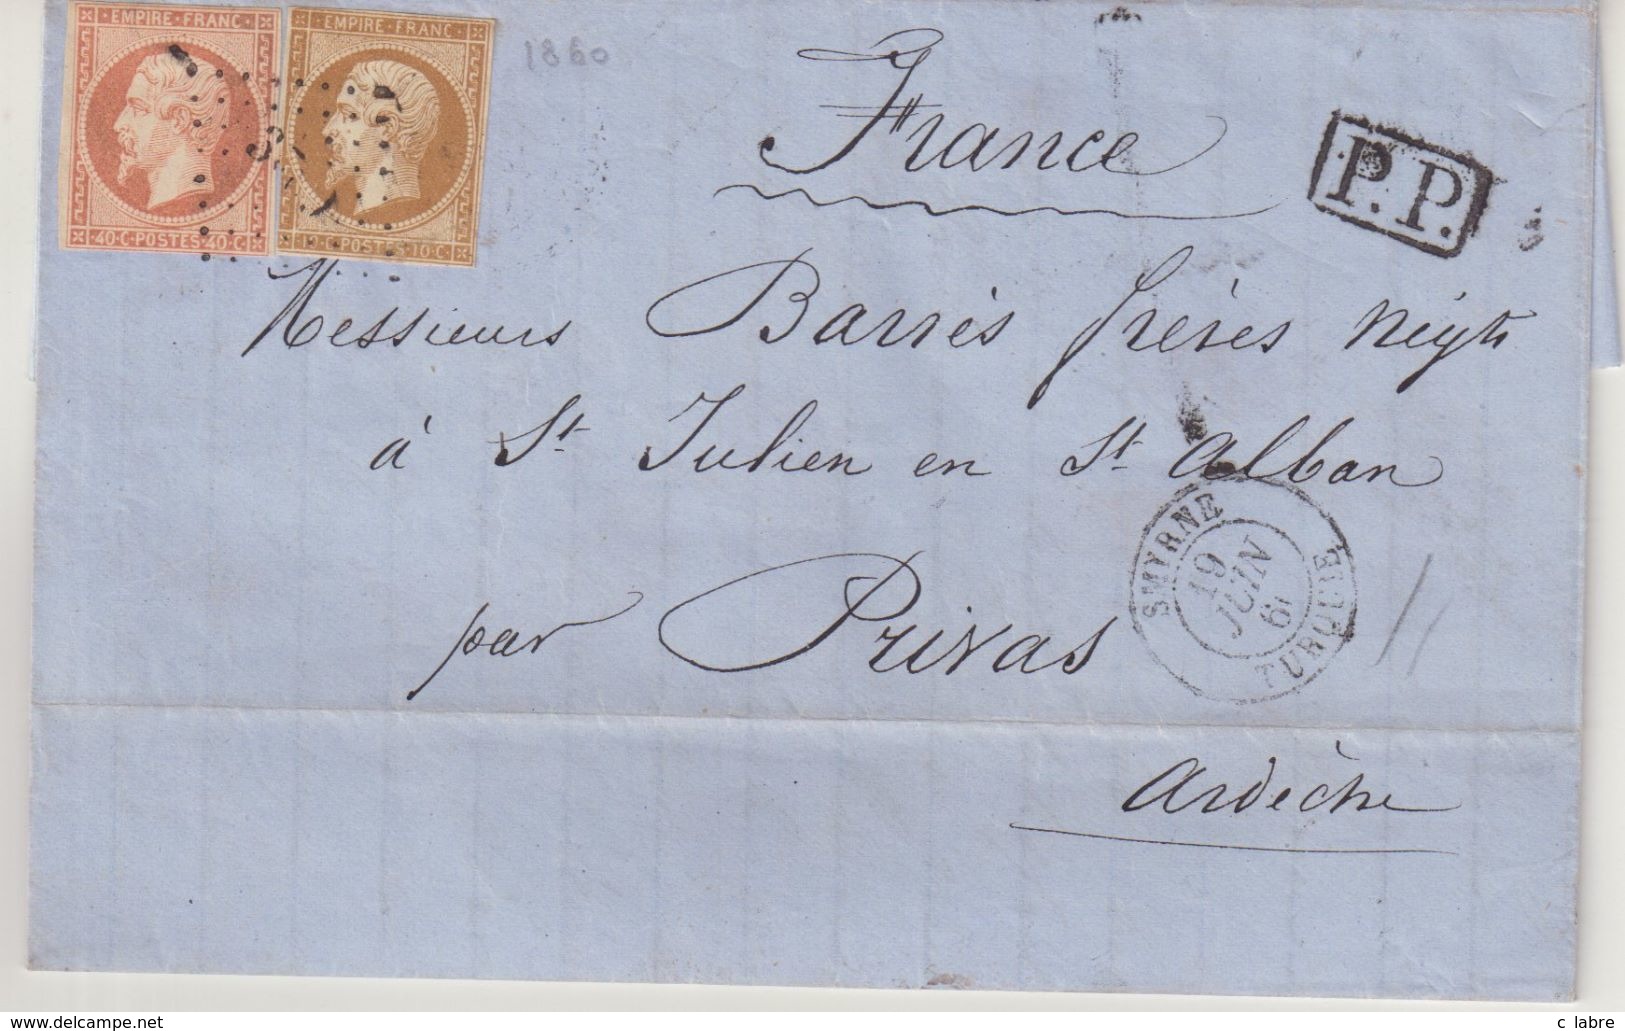 EMPIRE · FRANC ·
40 · C · POSTES · 40 · C ·
EMPIRE · FRANC ·
POSTES · 10 · C ·
1860
France
P.P.
Messieurs Barrès frères Négts
à St Julien en St Alban
SMYRNE
19
JUIN
TURQUIE
par Privas
Ardèche
www.delcampe.net
c labre